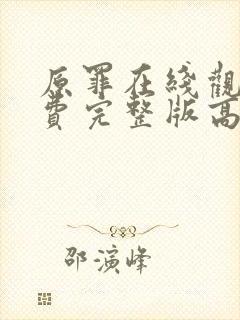 原罪在綫觀
費完整版高
邵演峰